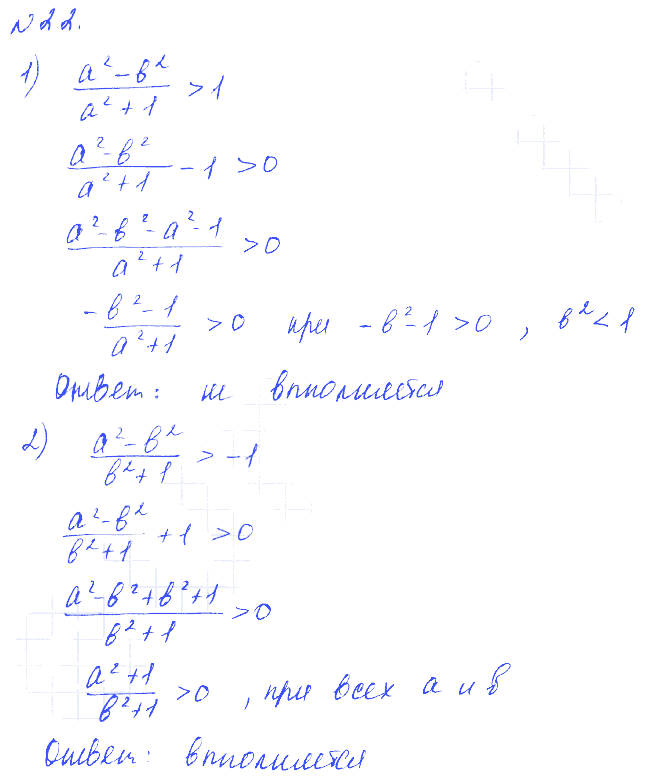 № 22.
1) (a² - в²)/(a² + 1) > 1
(a² - в²)/(a² + 1) - 1 > 0
(a² - в² - a² - 1)/(a² + 1) > 0
(-в² - 1)/(a² + 1) > 0 при -в² - 1 > 0 , в² < 1
Ответ: не выполняется
2) (a² - в²)/(в² + 1) > -1
(a² - в²)/(в² + 1) + 1 > 0
(a² - в² + в² + 1)/(в² + 1) > 0
(a² + 1)/(в² + 1) > 0 , при всех a и в
Ответ: выполняется